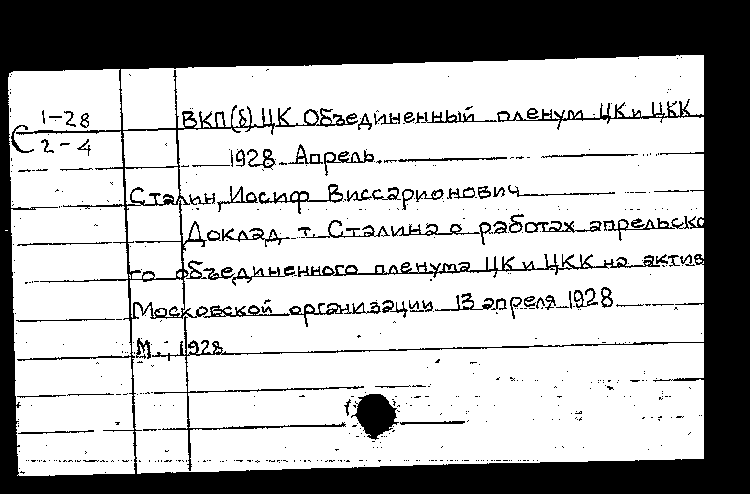 1-28
С
2-4
ВКП(б) ЦК. Объединенный пленум ЦК и ЦКК.
1928. Апрель.
Сталин, Иосиф Виссарионович
Доклад т. Сталина о работах апрельско
го объединенного пленума ЦК и ЦКК на актив
Московской организации 13 апреля 1928.
М., 1928.